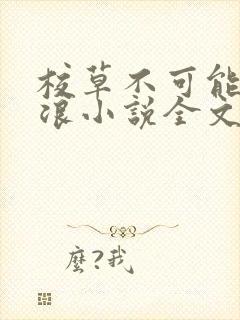 校草不可能
浪小說全文
麼?我